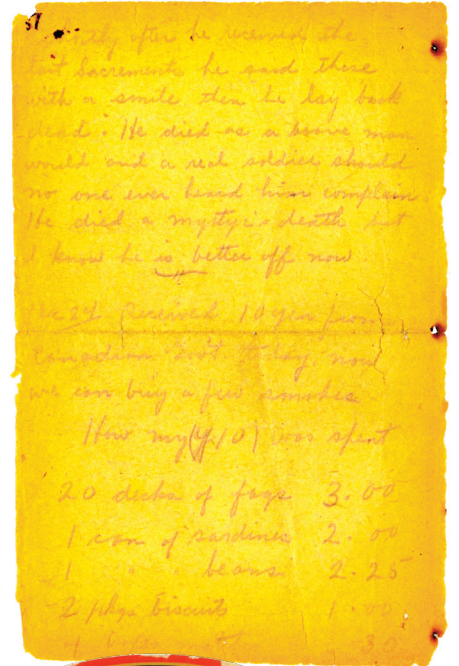 37
after he received the
last Sacrements he said these
with a smile then he lay back
dead. He died as a brave man
would and a real soldier should
no one ever heard him complain
He died a mystyr's death but
I know he is better off now.
Dec 24 Received 10 yen from
Canadian Gov't today, now
we can buy a few smokes
How my (¥10) was spent
20 decks of fags 3.00
1 can of sardines 2.00
1 " " beans 2.25
2 pkgs biscuits 1.00
30